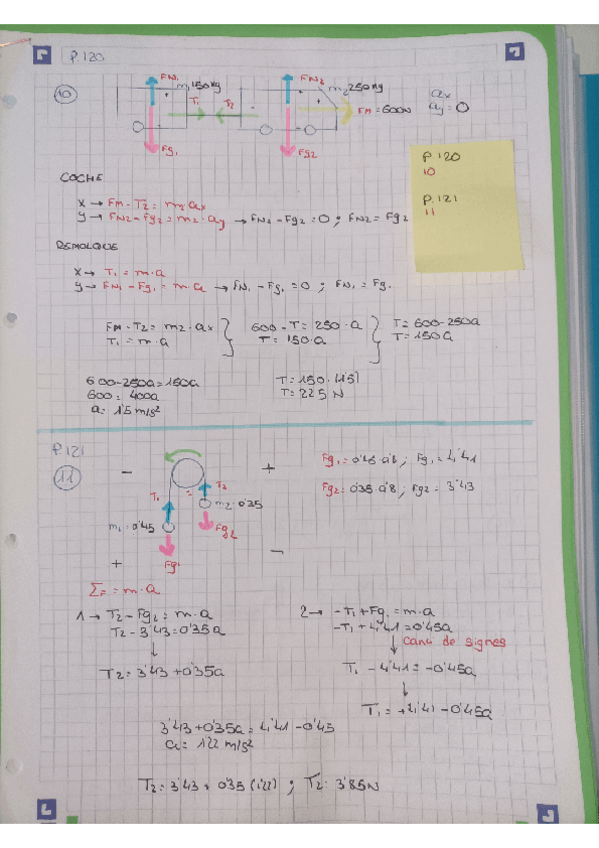 P.120
10
FN1 m1 150kg T1 T2 FN2 m2 250kg FM = 600N ax
ay = 0
Fg1 Fg2
P.120
10
P.121
11
COCHE
X → FM - T2 = m2 ax
y → FN2 - Fg2 = m2 · ay → FN2 - Fg2 = 0 ; FN2 = Fg2
REMOLQUE
X → T1 = m·a
y → FN1 - Fg1 = m·a → FN1 - Fg1 = 0 ; FN1 = Fg1
FM - T2 = m2 · ax } 600 - T = 250·a } T = 600 - 250a
T1 = m·a T = 150·a T = 150a
600 - 250a = 150a T = 150·(1'5)
600 = 400a T = 225 N
a = 1'5 m/s²
P.121
11
- + Fg1 = 0'45·9'8 ; Fg1 = 4'41
T1 T2 Fg2 = 0'35·9'8 ; Fg2 = 3'43
m2 = 0'35
m1 = 0'45 Fg2
+ Fg1 -
ΣF = m·a
1 → T2 - Fg2 = m·a 2 → -T1 + Fg1 = m·a
T2 - 3'43 = 0'35a -T1 + 4'41 = 0'45a
↓ Canvi de signes
T2 = 3'43 + 0'35a T1 - 4'41 = -0'45a
T1 = +4'41 - 0'45a
3'43 + 0'35a = 4'41 - 0'45
a = 1'22 m/s²
T2 = 3'43 + 0'35 (1'22) ; T2 = 3'85N